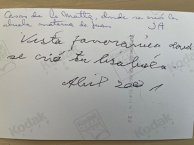 Casas de la Matta, donde se crió la
abuela materna de Juan
JA
Vista panoramica donde
se crió tu bisabuela
Abril 2001
Kodak